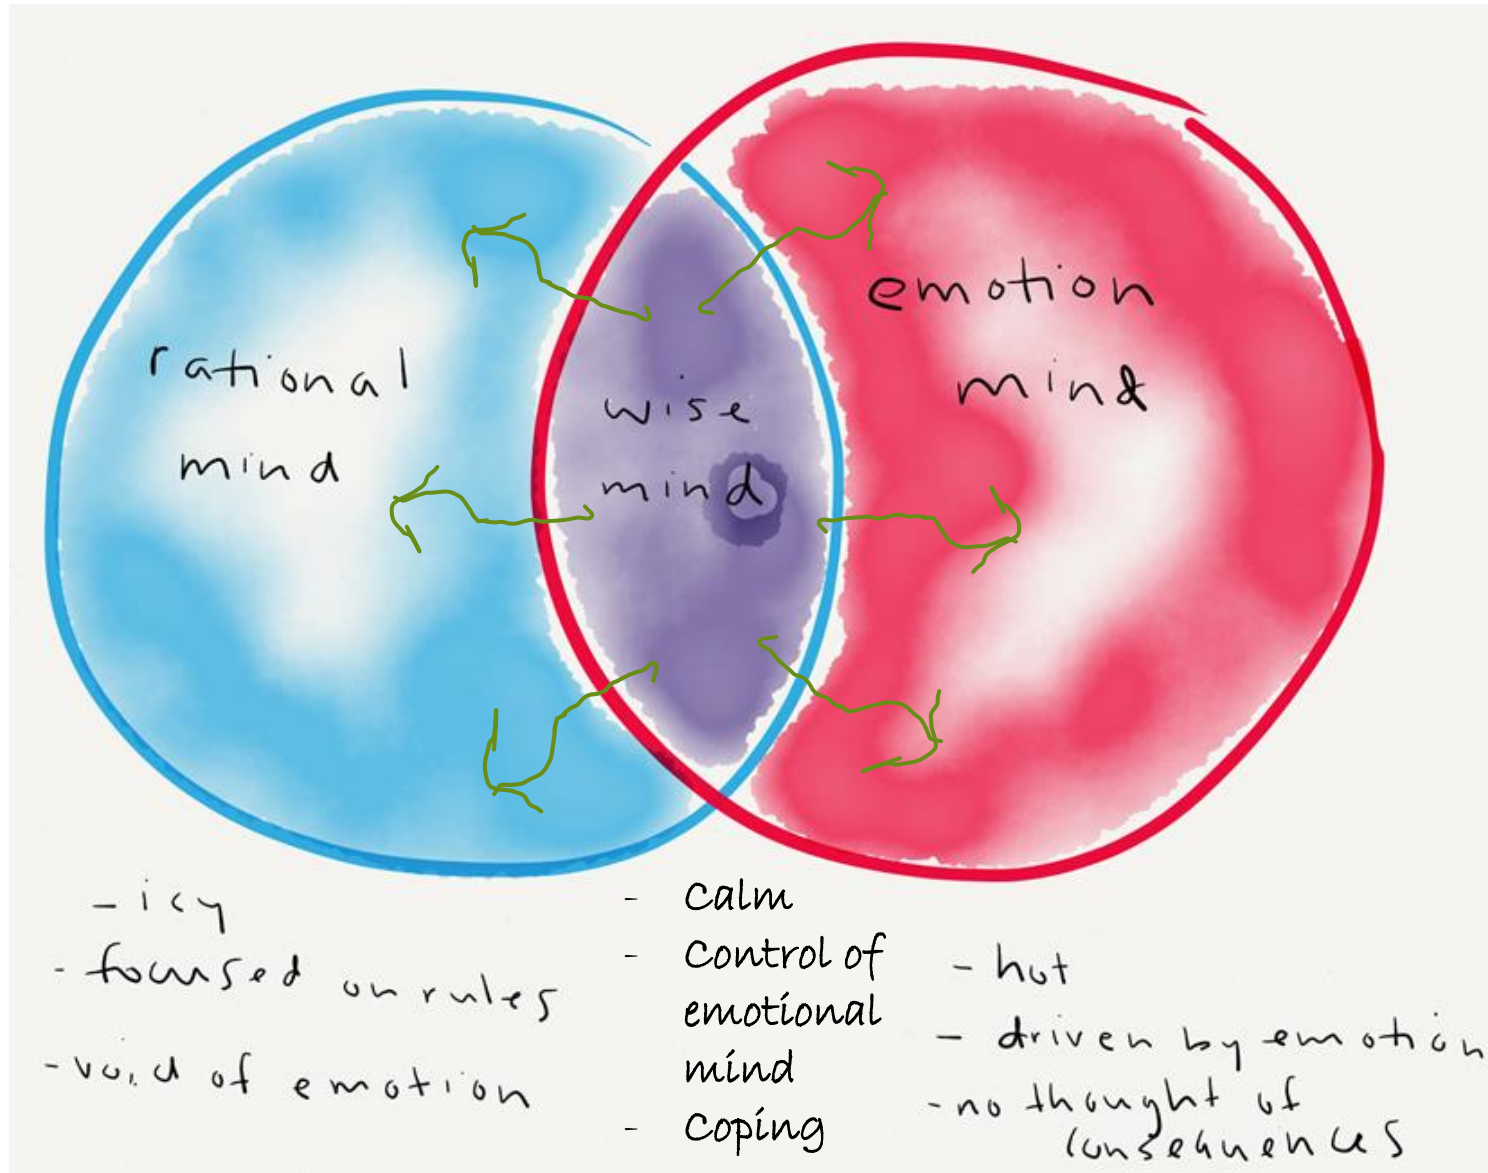 rational
mind
wise
mind
emotion
mind
- icy
- focused on rules
- void of emotion
- Calm
- Control of
emotional
mind
- Coping
- hot
- driven by emotion
- no thought of
consequences